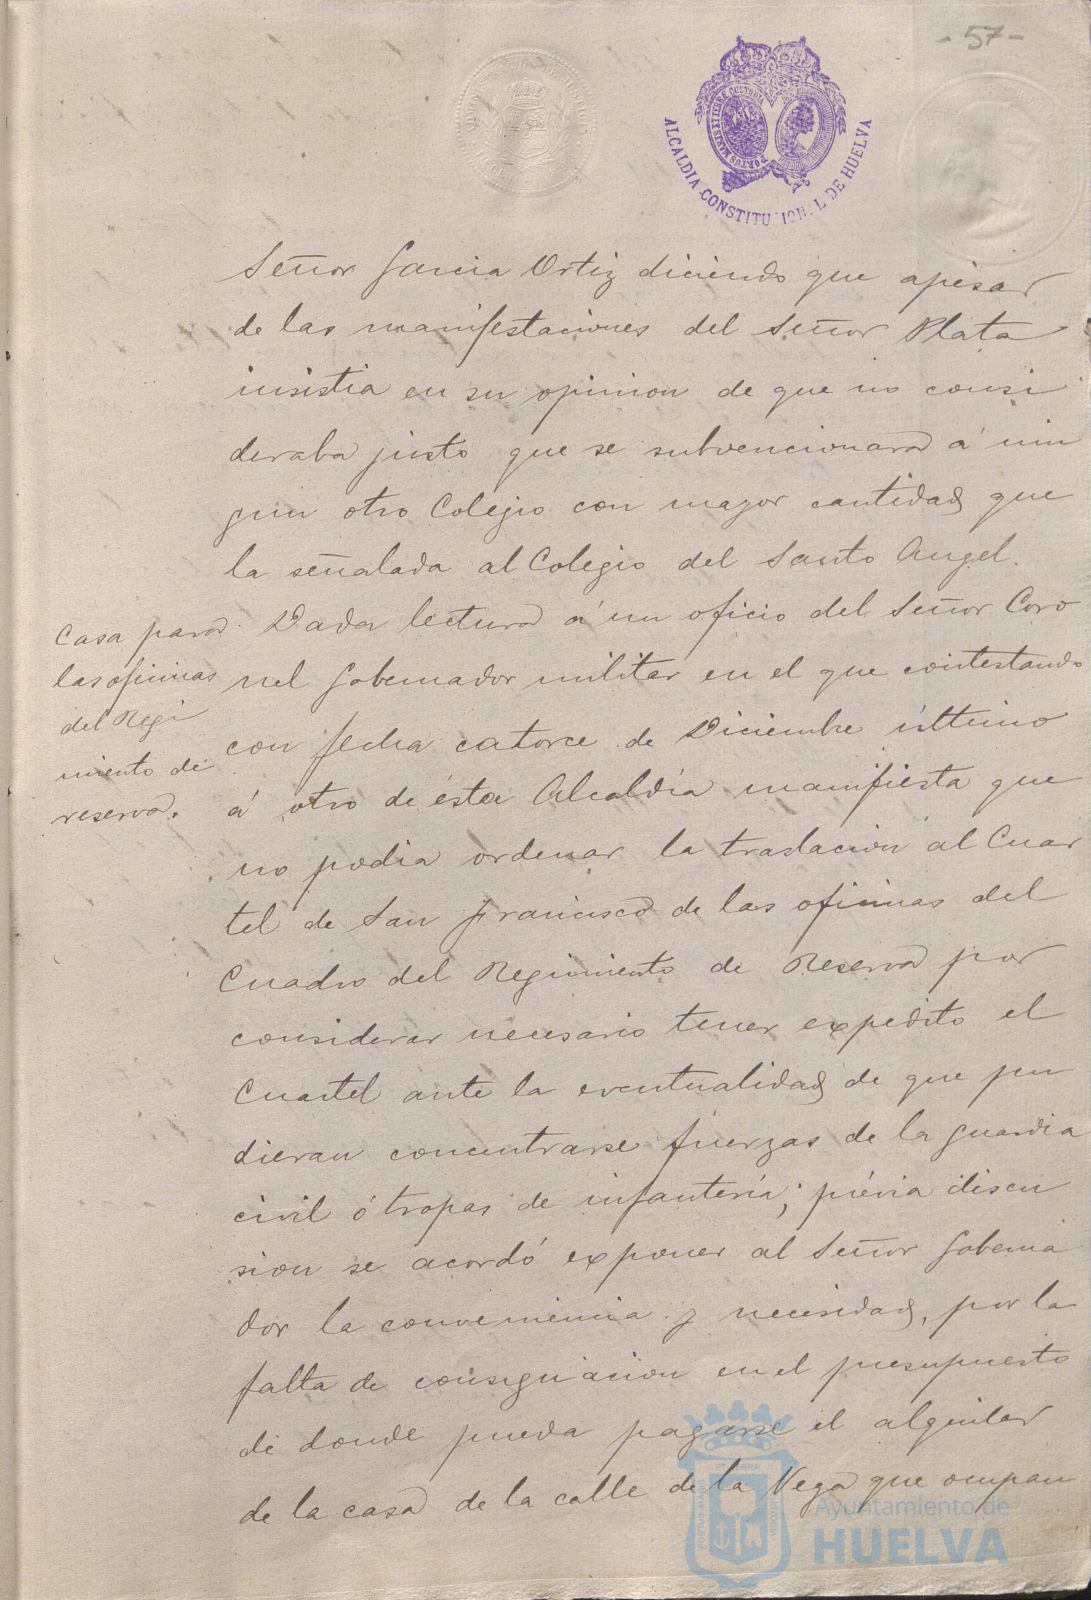 - 57 -
PORTUS MARIS ET TERRE CUSTODIA
ALCALDIA CONSTITUCIONAL DE HUELVA
Señor Garcia Ortiz diciendo que apesar
de las manifestaciones del Señor Plata
insistia en su opinion de que no consi
deraba justo que se subvencionara á nin
gun otro Colegio con mayor cantidad que
la señalada al Colegio del Santo Angel.
Casa para
las oficinas
del Regi
miento de
reserva.
Dada lectura á un oficio del Señor Coro
nel Gobernador militar en el que contestando
con fecha catorce de Diciembre último
á otro de ésta Alcaldía manifiesta que
no podia ordenar la traslacion al Cuar
tel de San Francisco de las oficinas del
Cuadro del Regimiento de Reserva por
considerar necesario tener expedito el
Cuartel ante la eventualidad de que pu
dieran concentrarse fuerzas de la guardia
civil ó tropas de infantería; prévia discu
sion se acordó exponer al Señor Goberna
dor la conveniencia y necesidad, por la
falta de consignacion en el presupuesto
de donde pueda pagarse el alquiler
de la casa de la calle de la Vega que ocupan
Ayuntamiento de
HUELVA